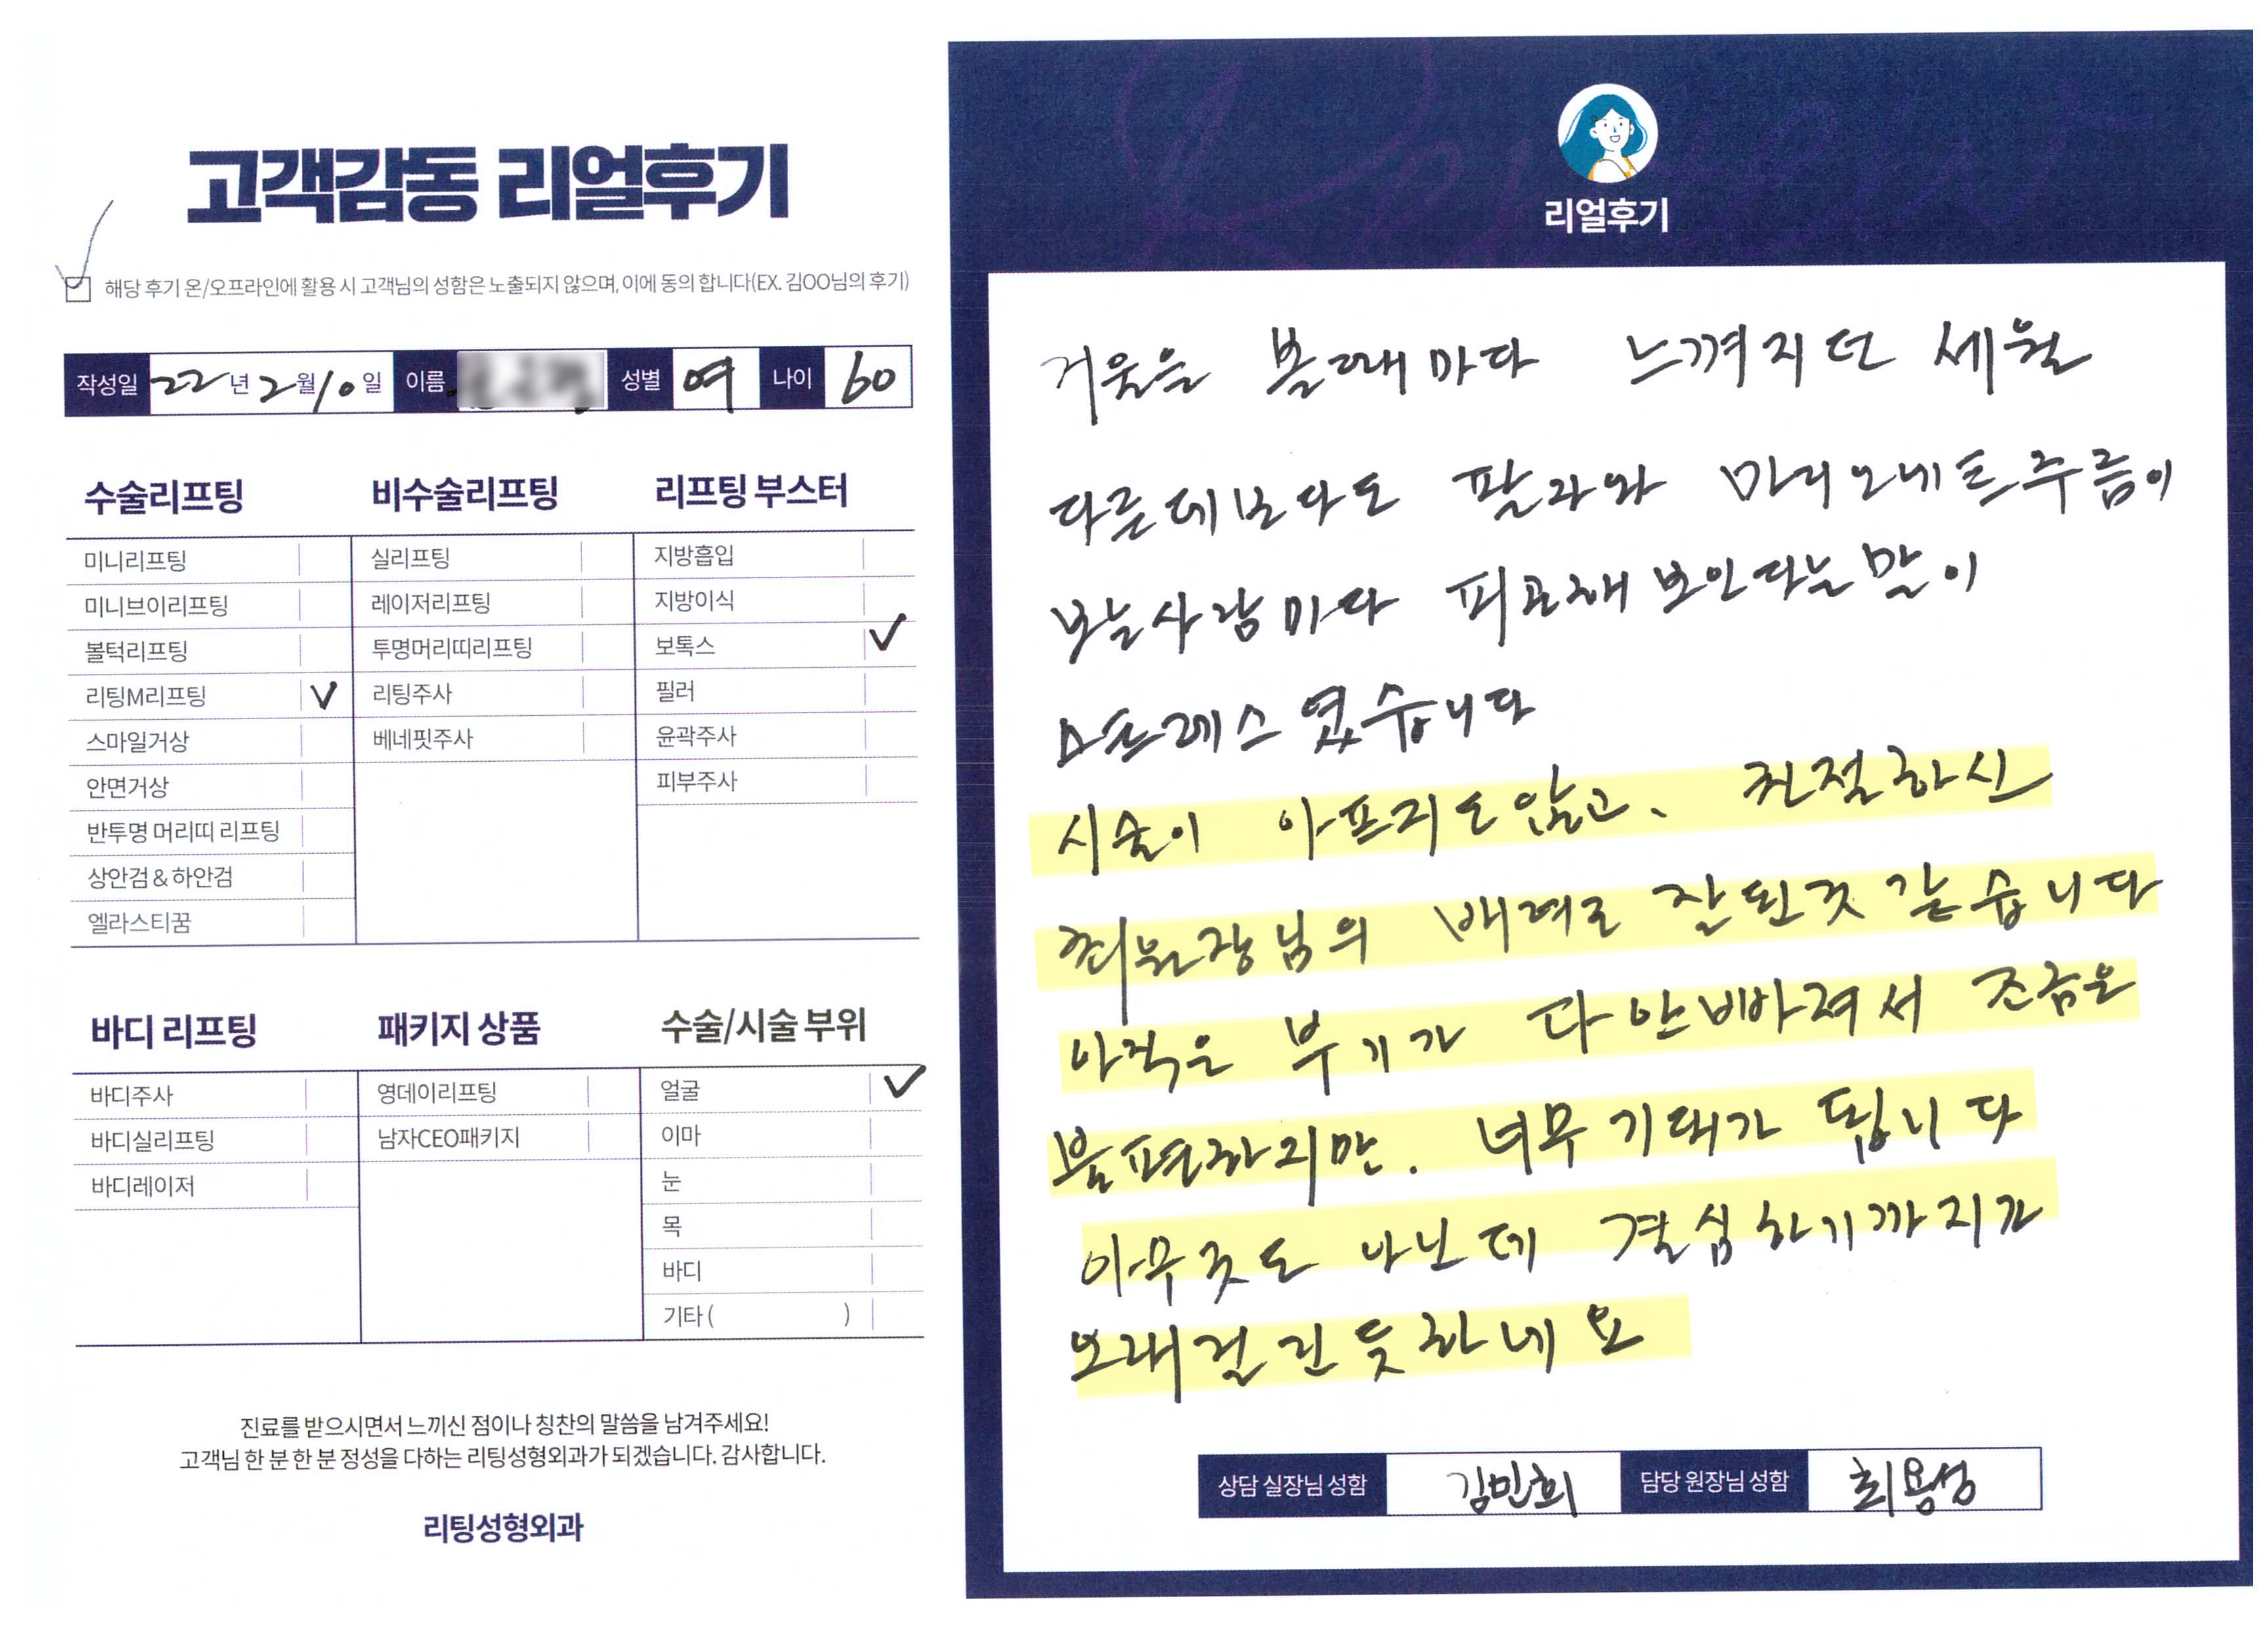 고객감동 리얼후기
해당 후기 온/오프라인에 활용 시 고객님의 성함은 노출되지 않으며, 이에 동의 합니다(EX. 김OO님의 후기)
작성일 22년 2월 10일 이름 성별 여 나이 60
수술리프팅 비수술리프팅 리프팅 부스터
미니리프팅 실리프팅 지방흡입
미니브이리프팅 레이저리프팅 지방이식
볼턱리프팅 투명머리띠리프팅 보톡스 ✓
리팅M리프팅 ✓ 리팅주사 필러
스마일거상 베네핏주사 윤곽주사
안면거상 피부주사
반투명 머리띠 리프팅
상안검 & 하안검
엘라스티꿈
바디 리프팅 패키지 상품 수술/시술 부위
바디주사 영데이리프팅 얼굴 ✓
바디실리프팅 남자CEO패키지 이마
바디레이저 눈
목
바디
기타 ( )
진료를 받으시면서 느끼신 점이나 칭찬의 말씀을 남겨주세요!
고객님 한 분 한 분 정성을 다하는 리팅성형외과가 되겠습니다. 감사합니다.
리팅성형외과
리얼후기
거울을 볼때마다 느껴지던 세월
다른데보다도 팔자와 마리오네트주름이
보는사람마다 피곤해보인다는 말이
스트레스였습니다
시술이 아프지도않고, 친절하신
최원장님의 배려로 잘된것 같습니다
아직은 부기가 다 안빠져서 조금은
불편하지만. 너무 기대가 됩니다
아무것도 아닌데 결심하기까지가
오래걸린듯하네요
상담 실장님 성함 김민희 담당 원장님 성함 최용성